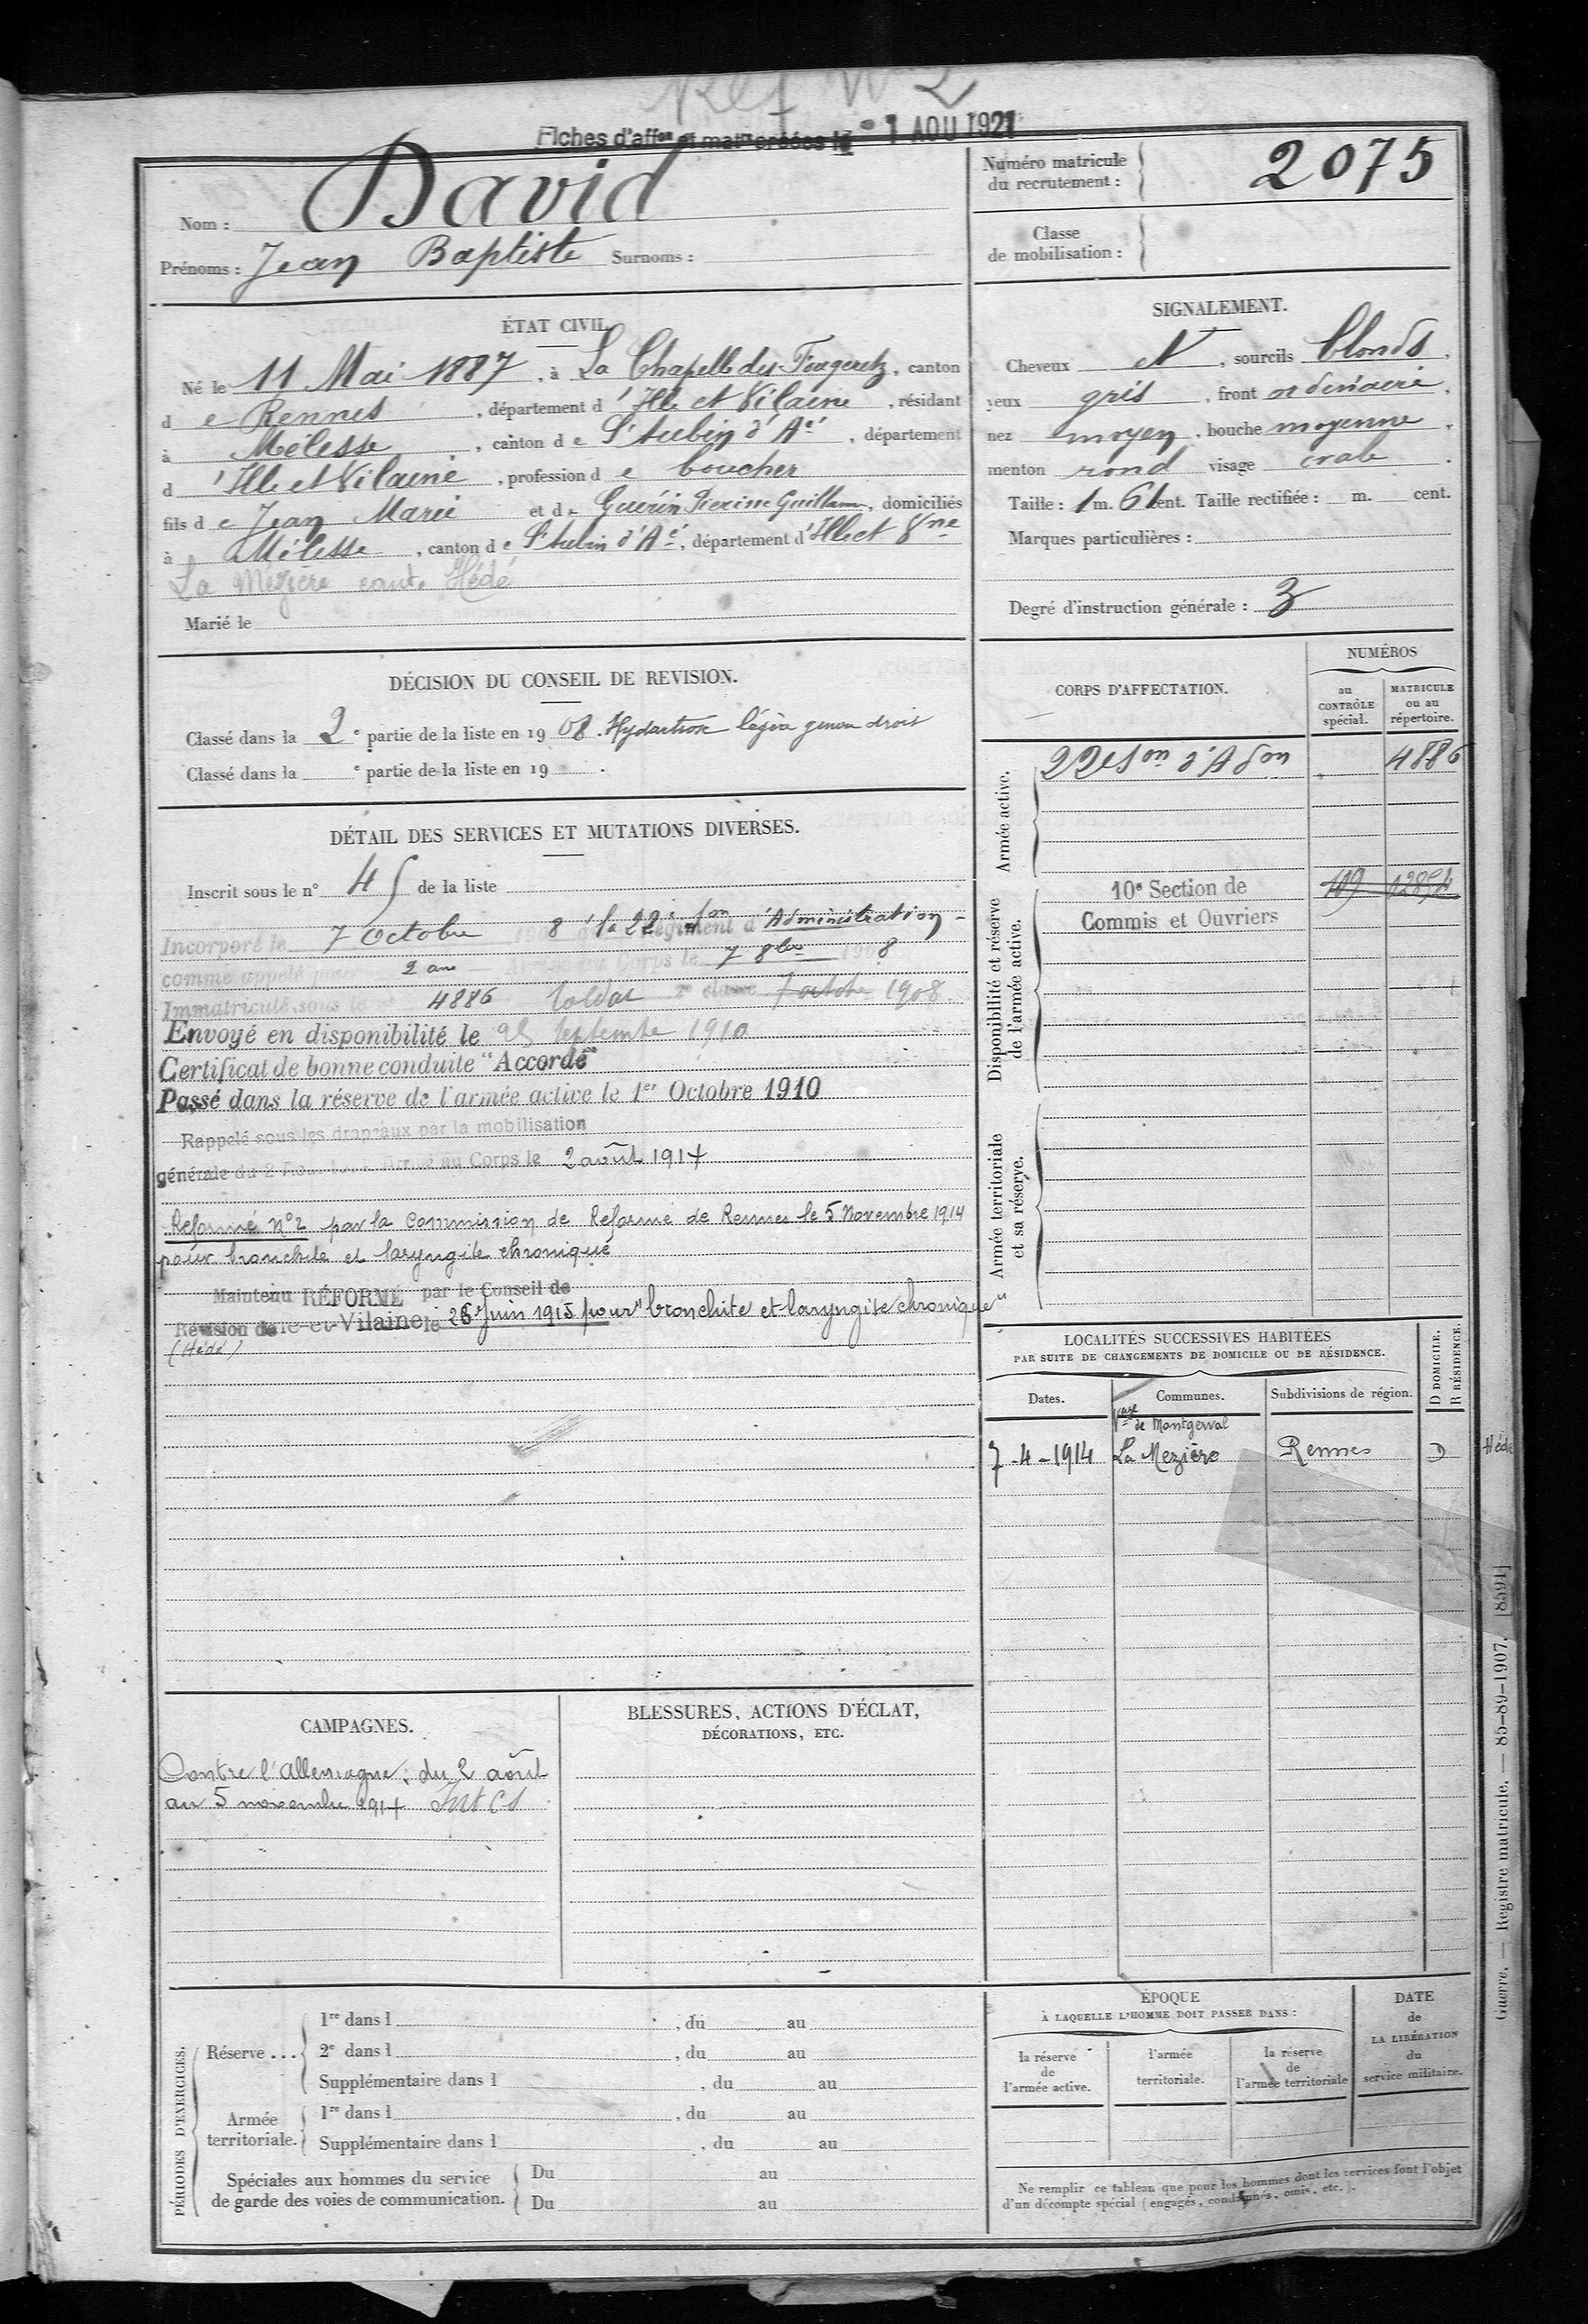 Ref n° 2
Fiches d'aff^on et mat^re créées le - 1 AOU 1921
Nom : David
Prénoms : Jean Baptiste Surnoms :
Numéro matricule
du recrutement : 2075
Classe
de mobilisation :
ÉTAT CIVIL.
Né le 11 Mai 1887, à La Chapelle des Fougeretz, canton
de Rennes, département d'Ille et Vilaine, résidant
à Mélesse, canton de St Aubin d'A^é, département
d'Ille et Vilaine, profession de boucher
fils de Jean Marie et de Guérin Pierrine Guillem, domiciliés
à Mélesse, canton de St Aubin d'A^é, département d'Ille et V^ne
La Mézière cant. Hédé
Marié le
SIGNALEMENT.
Cheveux N, sourcils blonds,
yeux gris, front ordinaire,
nez moyen, bouche moyenne,
menton rond visage ovale.
Taille : 1 m. 61 cent. Taille rectifiée : m. cent.
Marques particulières :
Degré d'instruction générale : 3
DÉCISION DU CONSEIL DE REVISION.
Classé dans la 2^e partie de la liste en 1908. Hydarthrose légère genou droit
Classé dans la ^e partie de la liste en 19 .
DÉTAIL DES SERVICES ET MUTATIONS DIVERSES.
Inscrit sous le n° 45 de la liste
Incorporé le 7 Octobre 1908 à la 22^e S^on d'Administration -
comme appelé pour 2 ans Arrivé au Corps le 7 8bre 1908
Immatriculé sous le n° 4886 soldat 2^e classe 7 octobre 1908.
Envoyé en disponibilité le 25 Septembre 1910
Certificat de bonne conduite "Accordé"
Passé dans la réserve de l'armée active le 1er Octobre 1910
Rappelé sous les drapeaux par la mobilisation
générale du 2 Août 1914. Arrivé au Corps le 2 août 1914
Réformé n°2 par la Commission de Réforme de Rennes le 5 Novembre 1914
pour bronchite et laryngite chronique
Maintenu RÉFORMÉ par le Conseil de
Révision de Ille-et-Vilaine le 26 Juin 1915 pour "bronchite et laryngite chronique"
(Hédé)
CORPS D'AFFECTATION.
NUMÉROS
au
CONTRÔLE
spécial.
MATRICULE
ou au
répertoire.
Armée active.
22e S^on d'Ad^on 4886
Disponibilité et réserve
de l'armée active.
10e Section de 109 1285
Commis et Ouvriers
Armée territoriale
et sa réserve.
LOCALITÉS SUCCESSIVES HABITÉES
PAR SUITE DE CHANGEMENTS DE DOMICILE OU DE RÉSIDENCE.
Dates. Communes. Subdivisions de région.
D DOMICILE.
R RÉSIDENCE.
V^age de Montgerval
7-4-1914 La Mézière Rennes D Hédé
CAMPAGNES.
Contre l'Allemagne : du 2 août
au 5 novembre 1914 Int CS
BLESSURES, ACTIONS D'ÉCLAT,
DÉCORATIONS, ETC.
PÉRIODES D'EXERCICES.
Réserve ...
1re dans l , du au
2e dans l , du au
Supplémentaire dans l , du au
Armée
territoriale.
1re dans l , du au
Supplémentaire dans l , du au
Spéciales aux hommes du service
de garde des voies de communication.
Du au
Du au
ÉPOQUE
À LAQUELLE L'HOMME DOIT PASSER DANS :
la réserve
de
l'armée active.
l'armée
territoriale.
la réserve
de
l'armée territoriale
DATE
de
LA LIBÉRATION
du
service militaire.
Ne remplir ce tableau que pour les hommes dont les services font l'objet
d'un décompte spécial (engagés, condamnés, omis, etc.).
Guerre. — Registre matricule. — 85-89-1907. [8591]